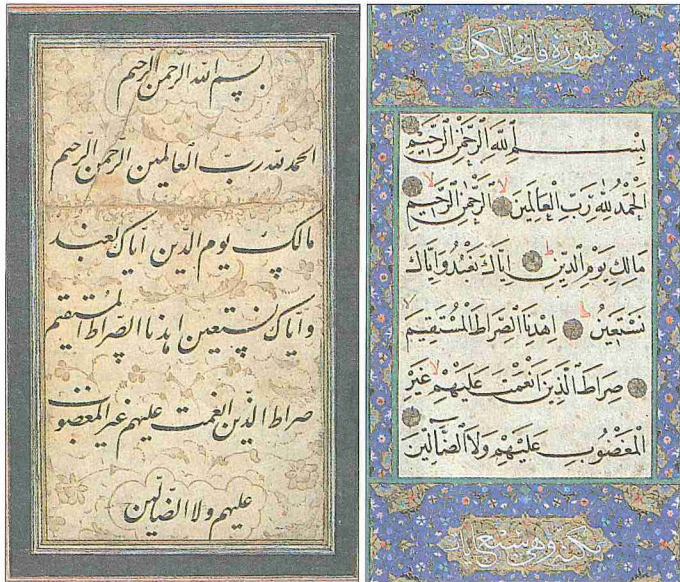 سورة فاتحة الكتاب
بِسْمِ اللهِ الرَّحْمٰنِ الرَّحِيمِ
اَلْحَمْدُ لِلّٰهِ رَبِّ الْعَالَمِينَ اَلرَّحْمٰنِ الرَّحِيمِ
مَالِكِ يَوْمِ الدِّينِ اِيَّاكَ نَعْبُدُ وَاِيَّاكَ
نَسْتَعِينُ اِهْدِنَا الصِّرَاطَ الْمُسْتَقِيمَ
صِرَاطَ الَّذِينَ اَنْعَمْتَ عَلَيْهِمْ غَيْرِ
الْمَغْضُوبِ عَلَيْهِمْ وَلَا الضَّالِّينَ
مكية وهي سبع ايات
بسم الله الرّحمن الرّحيم
الحمد لله ربّ العالمين الرّحمن الرّحيم
مالك يوم الدّين ايّاك نعبد
وايّاك نستعين اهدنا الصّراط المستقيم
صراط الذّين انعمت عليهم غير المغضوب
عليهم ولا الضّالّين